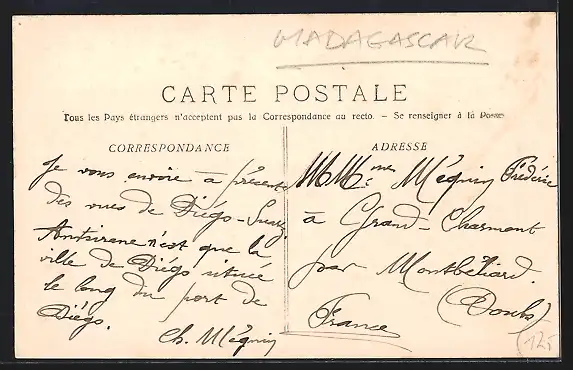 MADAGASCAR
CARTE POSTALE
Tous les Pays étrangers n'acceptent pas la Correspondance au recto. - Se renseigner à la Poste
CORRESPONDANCE
Je vous envoie à présent
des vues de Diégo-Suarez
Antsirane n'est que la
ville de Diégo située
le long du port de
Diégo.
Ch. Méquin
ADRESSE
Méquin Frédéric
à Grand-Charmont
par Montbéliard.
(Doubs)
France
125